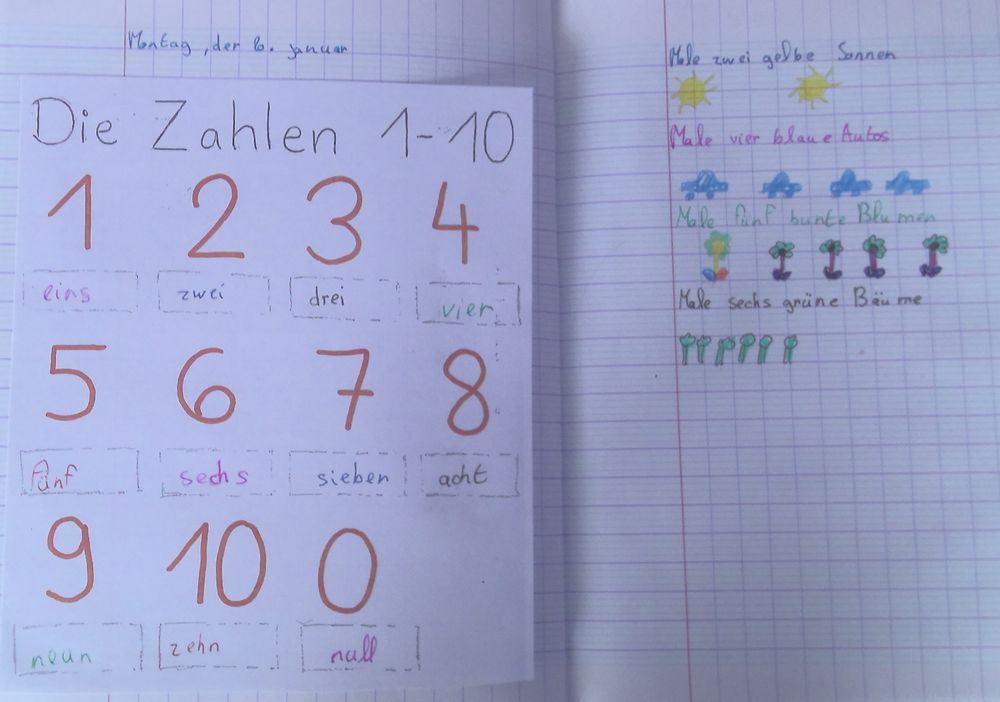 Montag, der 6. Januar
Die Zahlen 1-10
1 2 3 4
eins zwei drei vier
5 6 7 8
fünf sechs sieben acht
9 10 0
neun zehn null
Male zwei gelbe Sonnen
Male vier blaue Autos
Male fünf bunte Blumen
Male sechs grüne Bäume